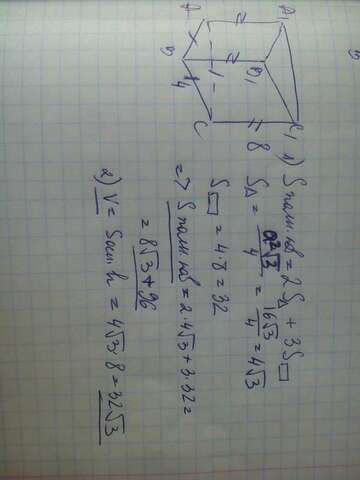 A A₁
B B₁
4
C C₁
8
1) S полн. пов = 2S△ + 3S□
S△ = a²√3/4 = 16√3/4 = 4√3
S□ = 4·8 = 32
=> S полн. пов = 2·4√3 + 3·32 =
= 8√3 + 96
2) V = Sосн. h = 4√3·8 = 32√3